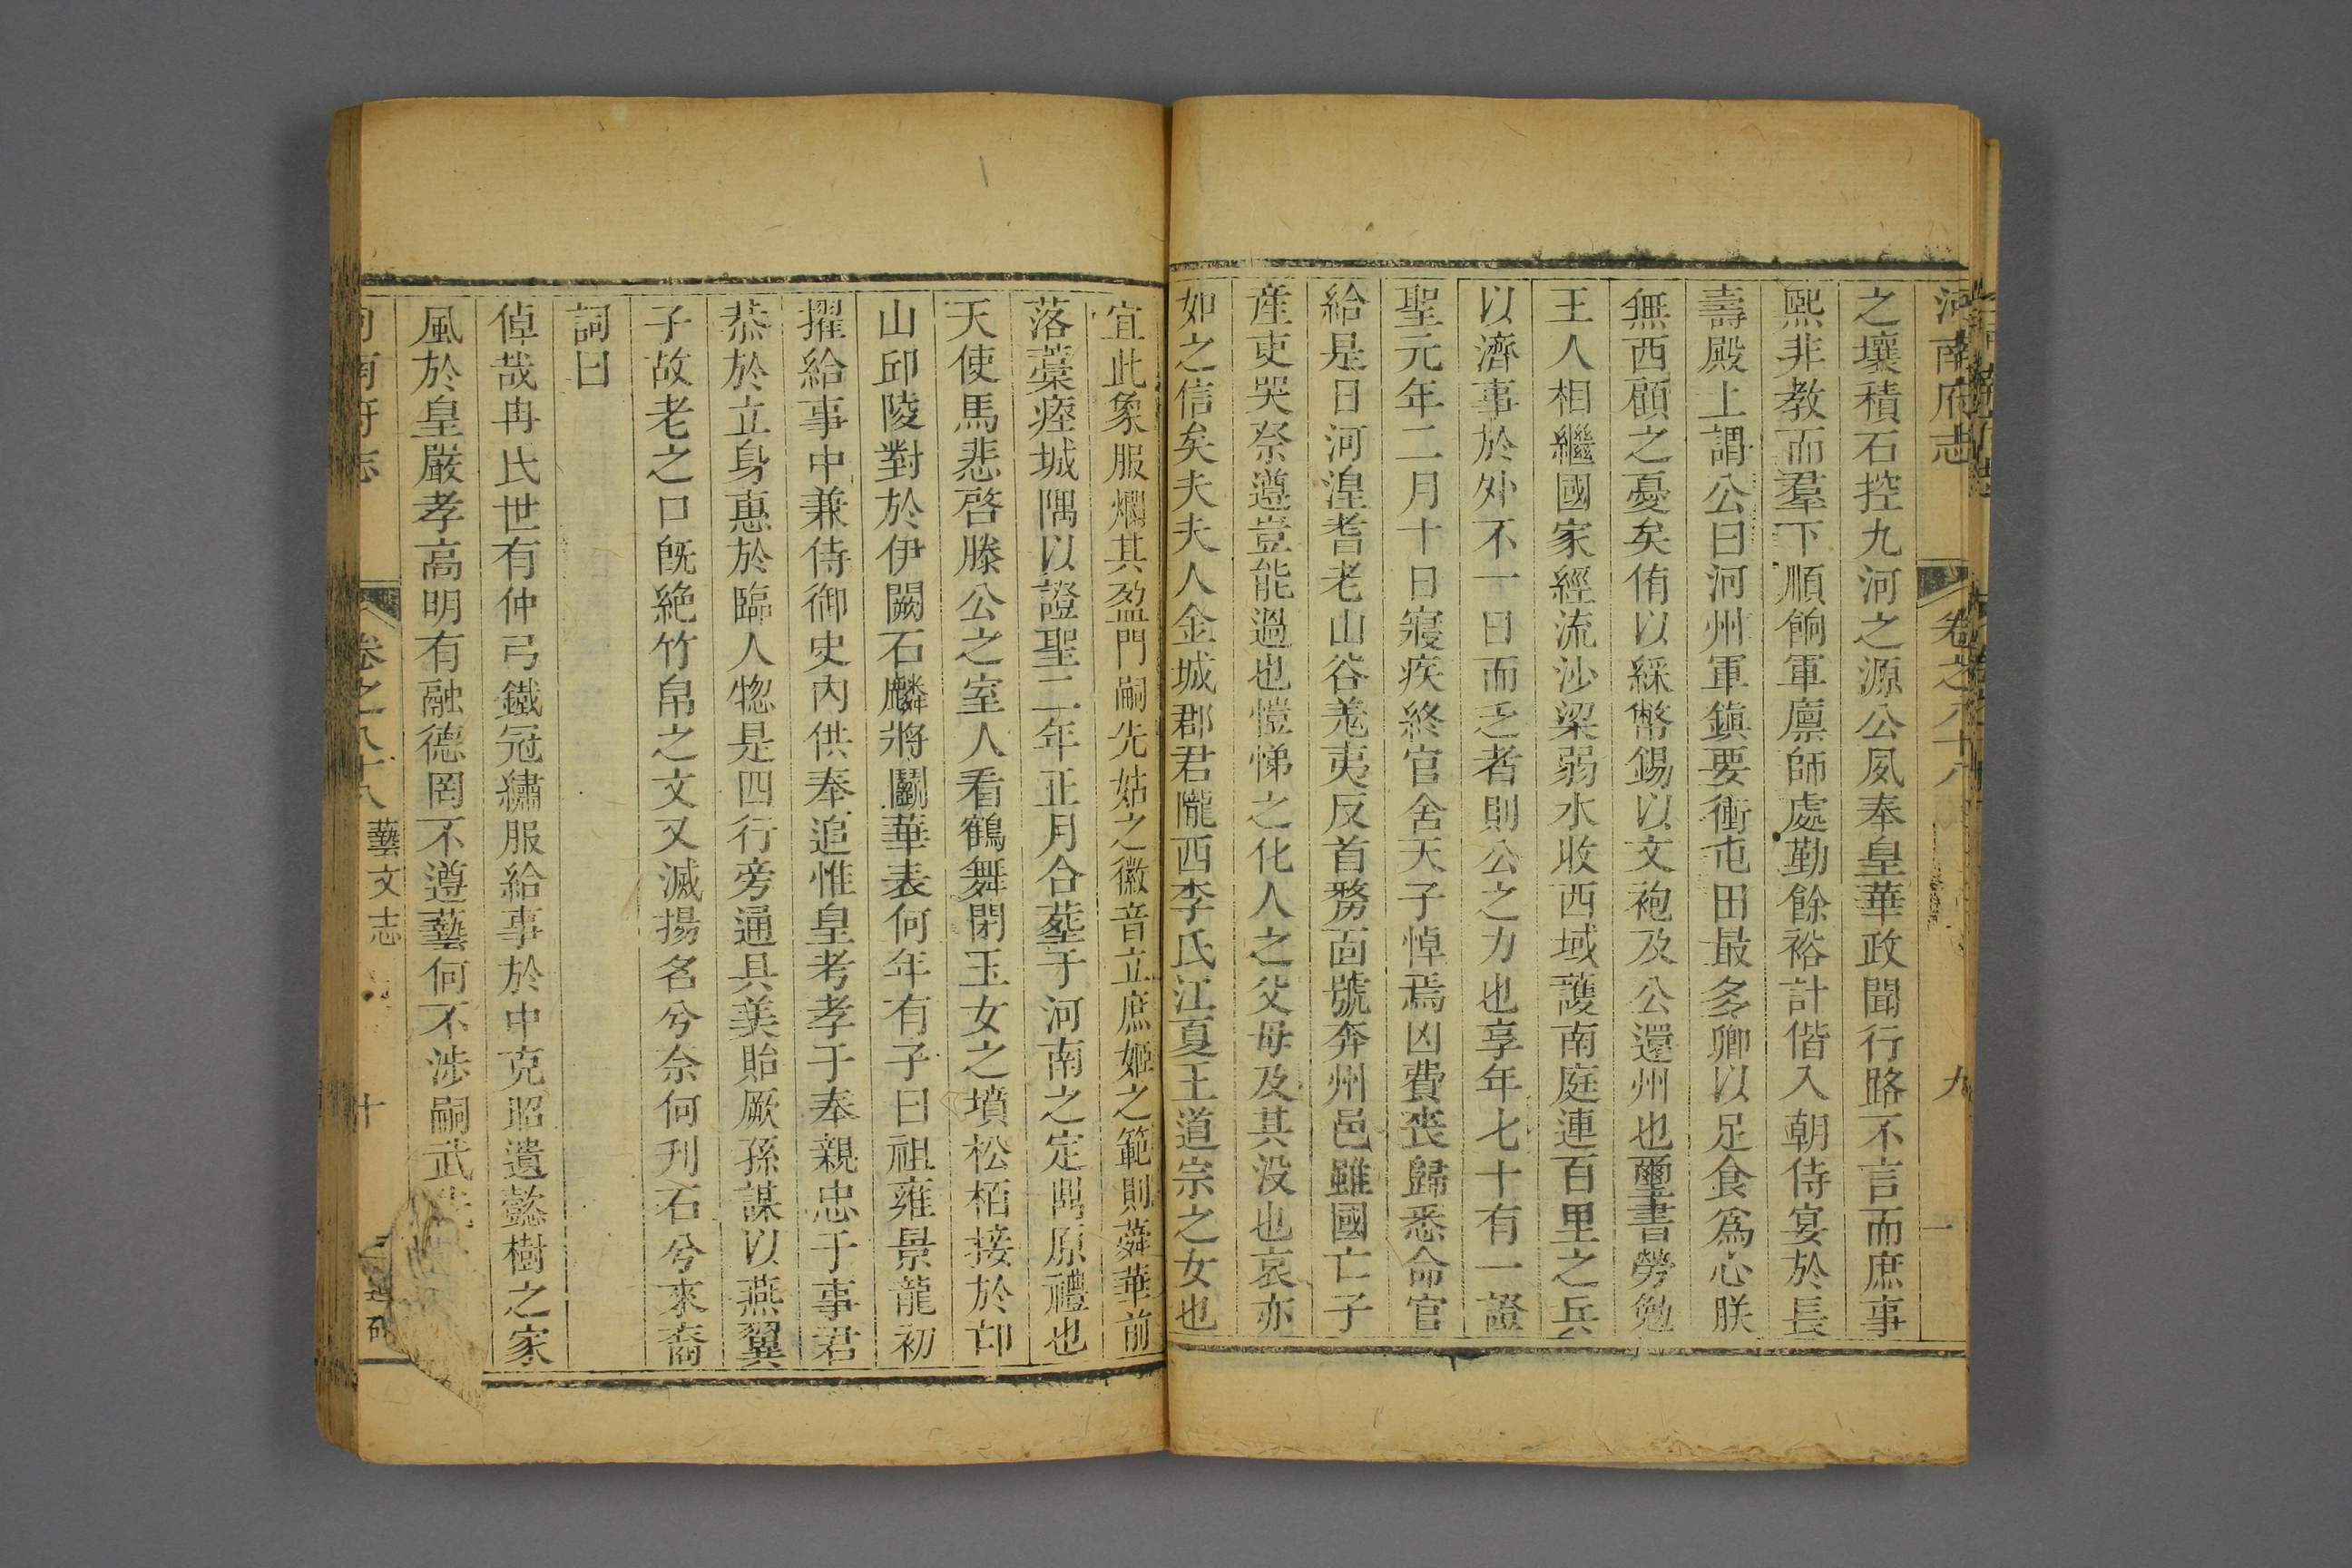 河南府志 卷之八十八 九
之壤積石控九河之源公夙奉皇華政聞行路不言而庶事
熙非教而羣下順餉軍廪師處勤餘裕計偕入朝侍宴於長
壽殿上謂公曰河州軍鎮要衝屯田最多卿以足食爲心朕
無西顧之憂矣侑以綵幣錫以文袍及公還州也璽書勞勉
王人相繼國家經流沙梁弱水收西域護南庭連百里之兵
以濟事於外不一日而乏者則公之力也享年七十有一證
聖元年二月十日寢疾終官舍天子悼焉凶費喪歸悉命官
給是日河湟耆老山谷羗夷反首剺面號奔州邑雖國亡子
産吏哭祭遵豈能過也愷悌之化人之父母及其没也哀亦
如之信矣夫夫人金城郡君隴西李氏江夏王道宗之女也
宜此象服爛其盈門嗣先姑之徽音立庶姬之範則蕣華前
落藁瘞城隅以證聖二年正月合塟于河南之定鼎原禮也
天使馬悲啓滕公之室人看鶴舞閉玉女之墳松栢接於邙
山邱陵對於伊闕石麟將鬭華表何年有子曰祖雍景龍初
擢給事中兼侍御史内供奉追惟皇考孝于奉親忠于事君
恭於立身惠於臨人惣是四行旁通具美貽厥孫謀以燕翼
子故老之口既絶竹帛之文又滅揚名兮奈何刋石兮來裔
詞曰
倬哉冉氏世有仲弓鐵冠繡服給事於中克昭遺懿樹之家
風於皇嚴孝高明有融德罔不遵藝何不涉嗣武
河南府志 卷之八十八 藝文志 十